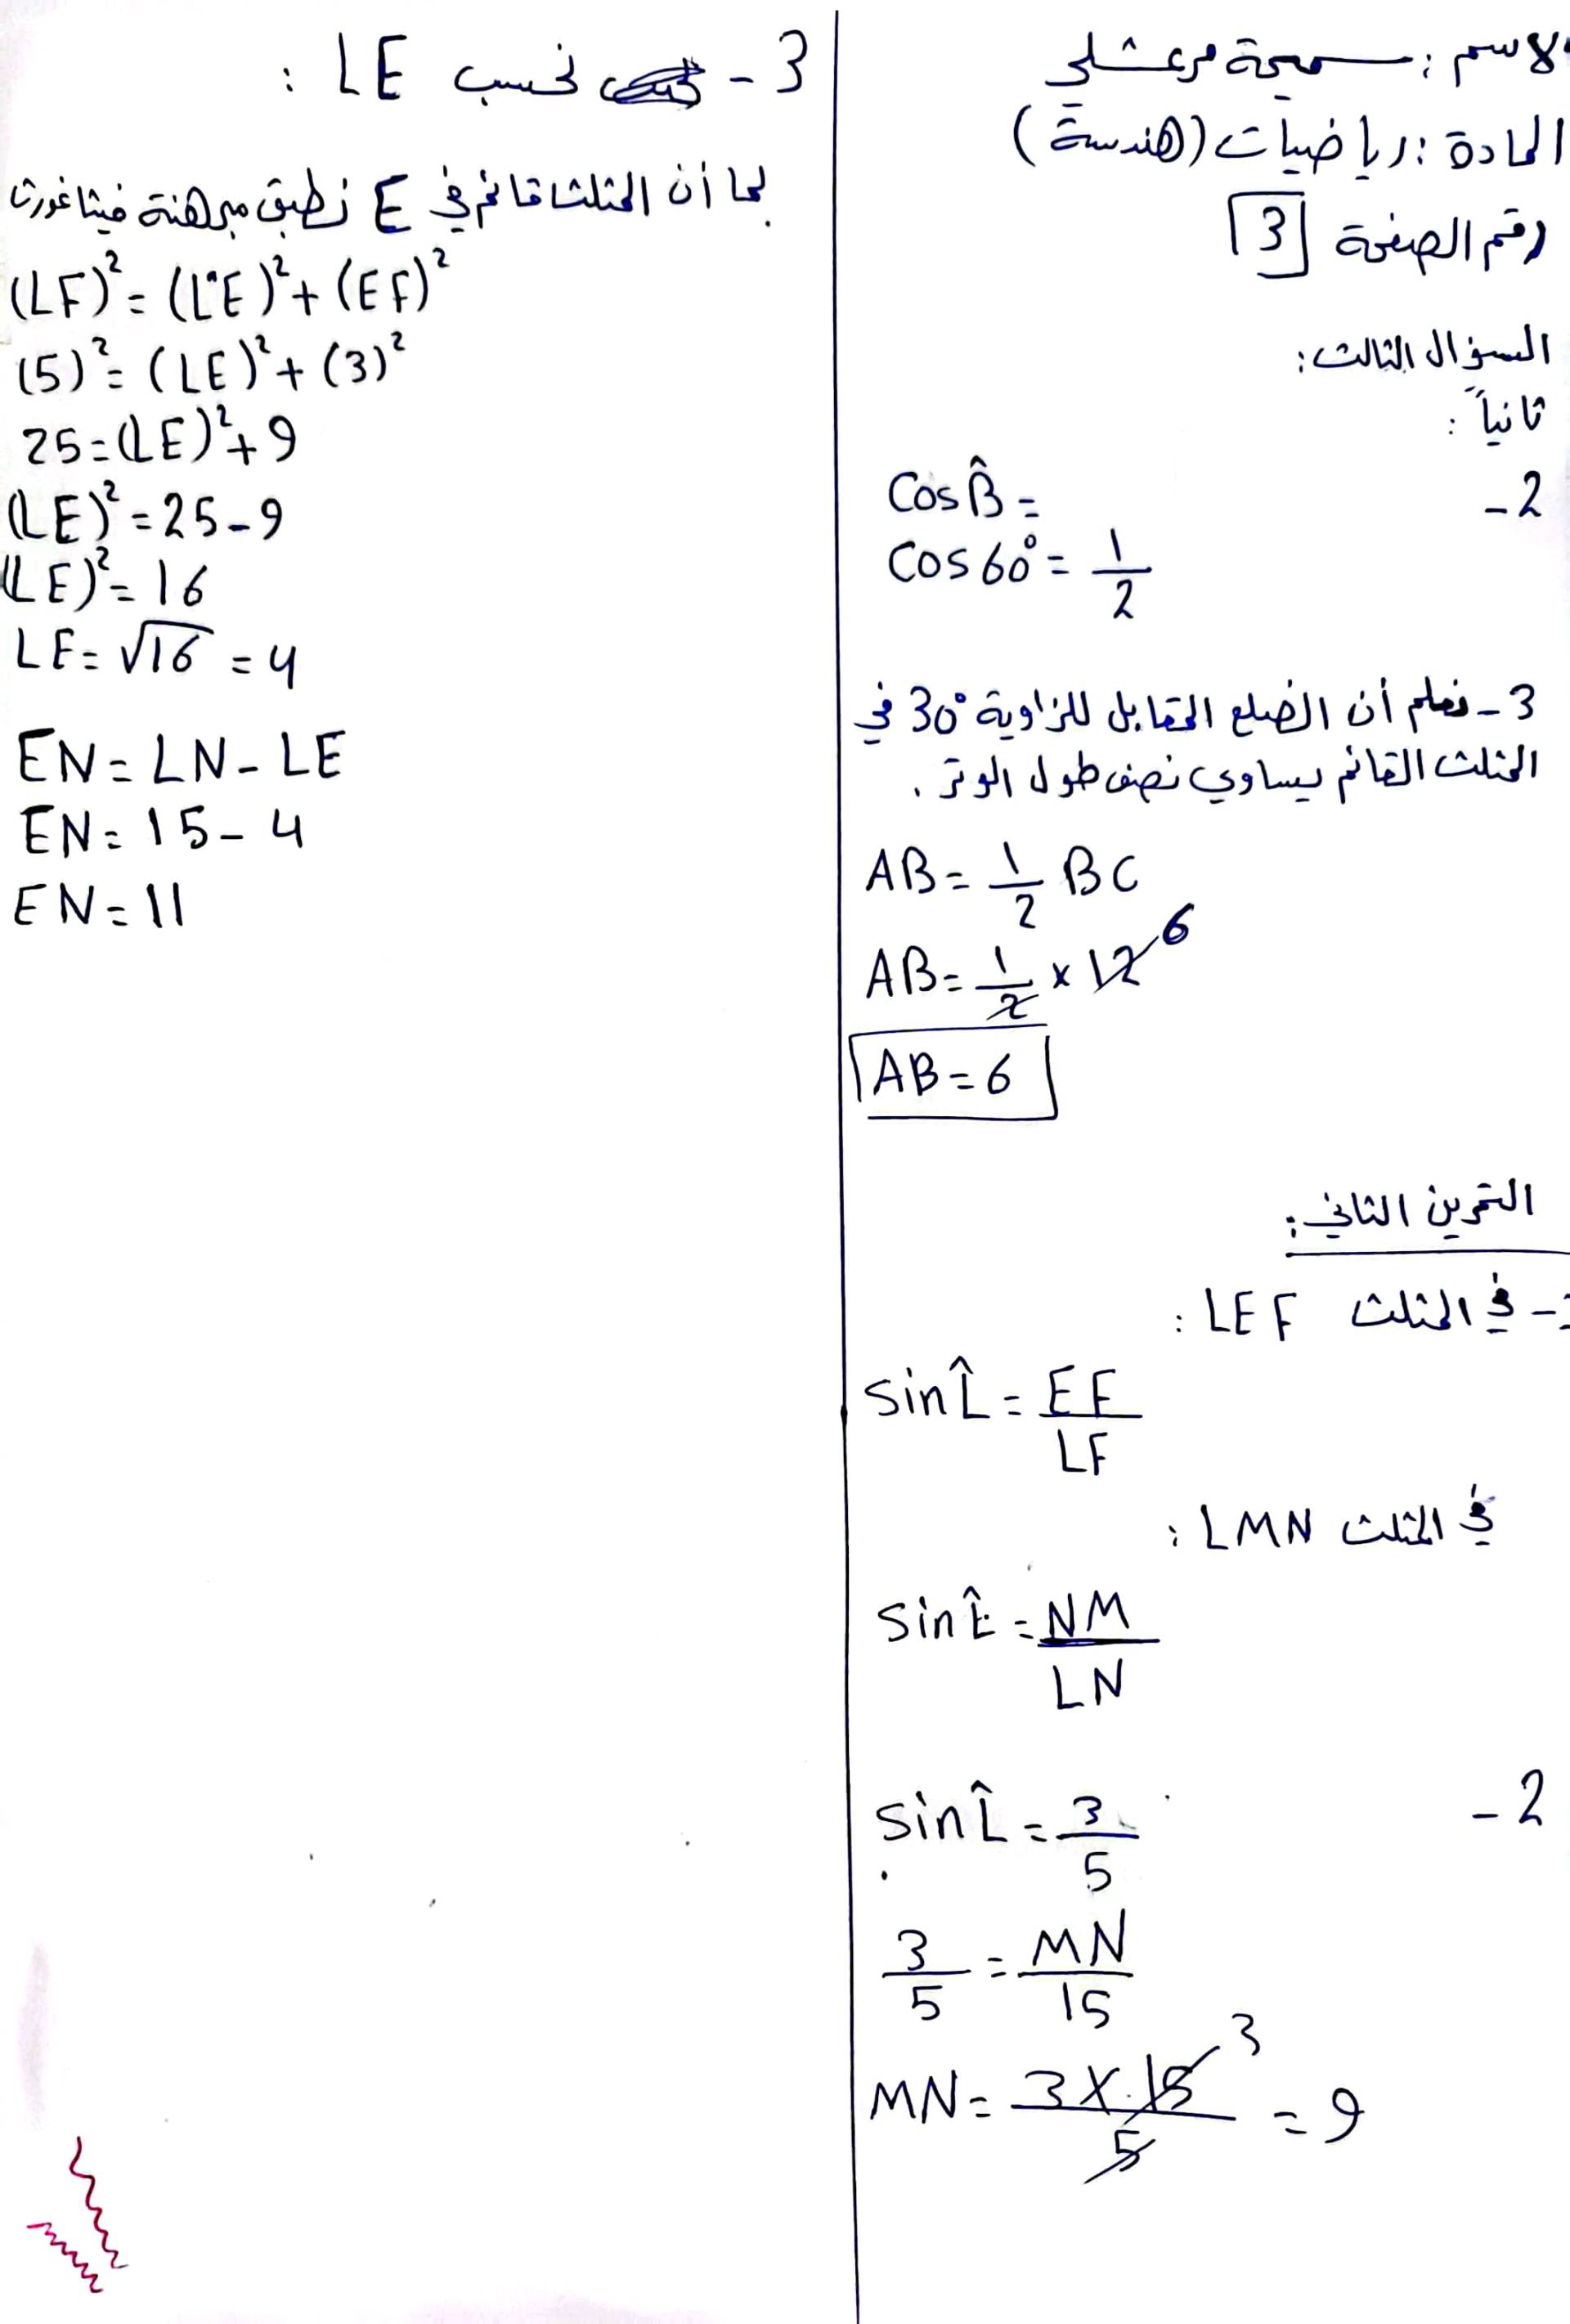 الاسم: سميحة مرعشلي
المادة: رياضيات (هندسة)
رقم الصفحة 3
السؤال الثالث:
ثانياً:
2-
Cos B̂ =
Cos 60° = 1/2
3- نعلم أن الضلع المقابل للزاوية 30° في
المثلث القائم يساوي نصف طول الوتر.
AB = 1/2 BC
AB = 1/2 × 12 6
AB = 6
التمرين الثاني:
- في المثلث LEF:
sin L̂ = EF/LF
في المثلث LMN:
sin L̂ = NM/LN
2-
sin L̂ = 3/5
3/5 = MN/15
MN = 3 × 15/5 3 = 9
3- نحسب LE:
بما أن المثلث قائم في E نطبق مبرهنة فيثاغورث
(LF)² = (LE)² + (EF)²
(5)² = (LE)² + (3)²
25 = (LE)² + 9
(LE)² = 25 - 9
(LE)² = 16
LE = √16 = 4
EN = LN - LE
EN = 15 - 4
EN = 11